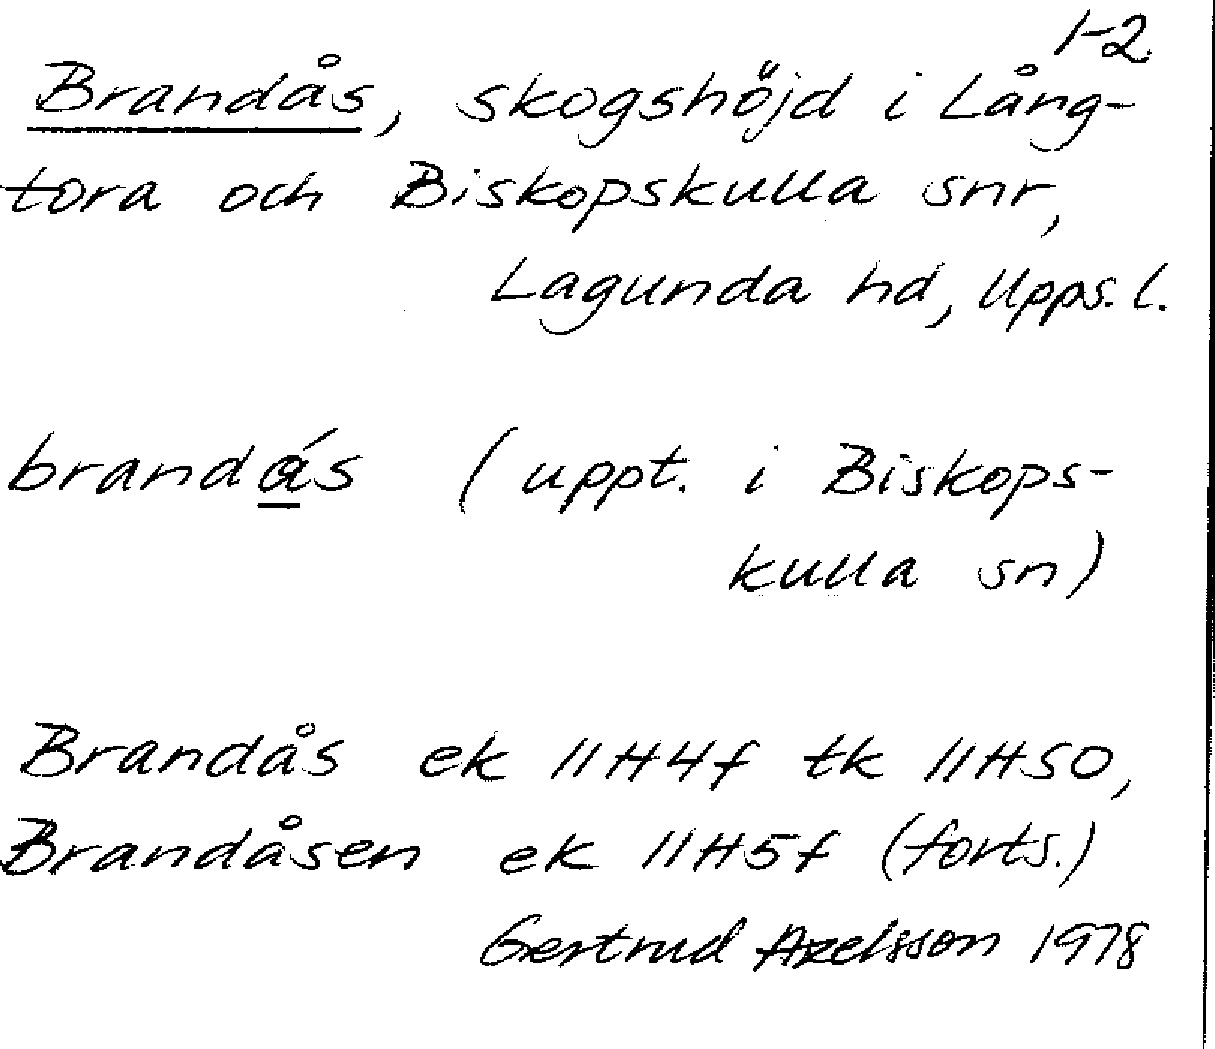 1-2.
Brandås, skogshöjd i Lång-
tora och Biskopskulla snr,
Lagunda hd, Upps. l.
brandás (uppt. i Biskops-
kulla sn)
Brandås ek 11H4f tk 11HSO,
Brandåsen ek 11H5f (forts.)
Gertrud Axelsson 1978